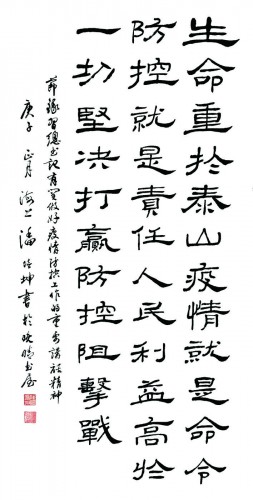 生命重於泰山疫情就是命令
防控就是責任人民利益高於
一切堅决打贏防控阻擊戰
節録習總书记有関做好疫情防控工作的重要講話精神
庚子正月海上潘坤書於晚晴书屋